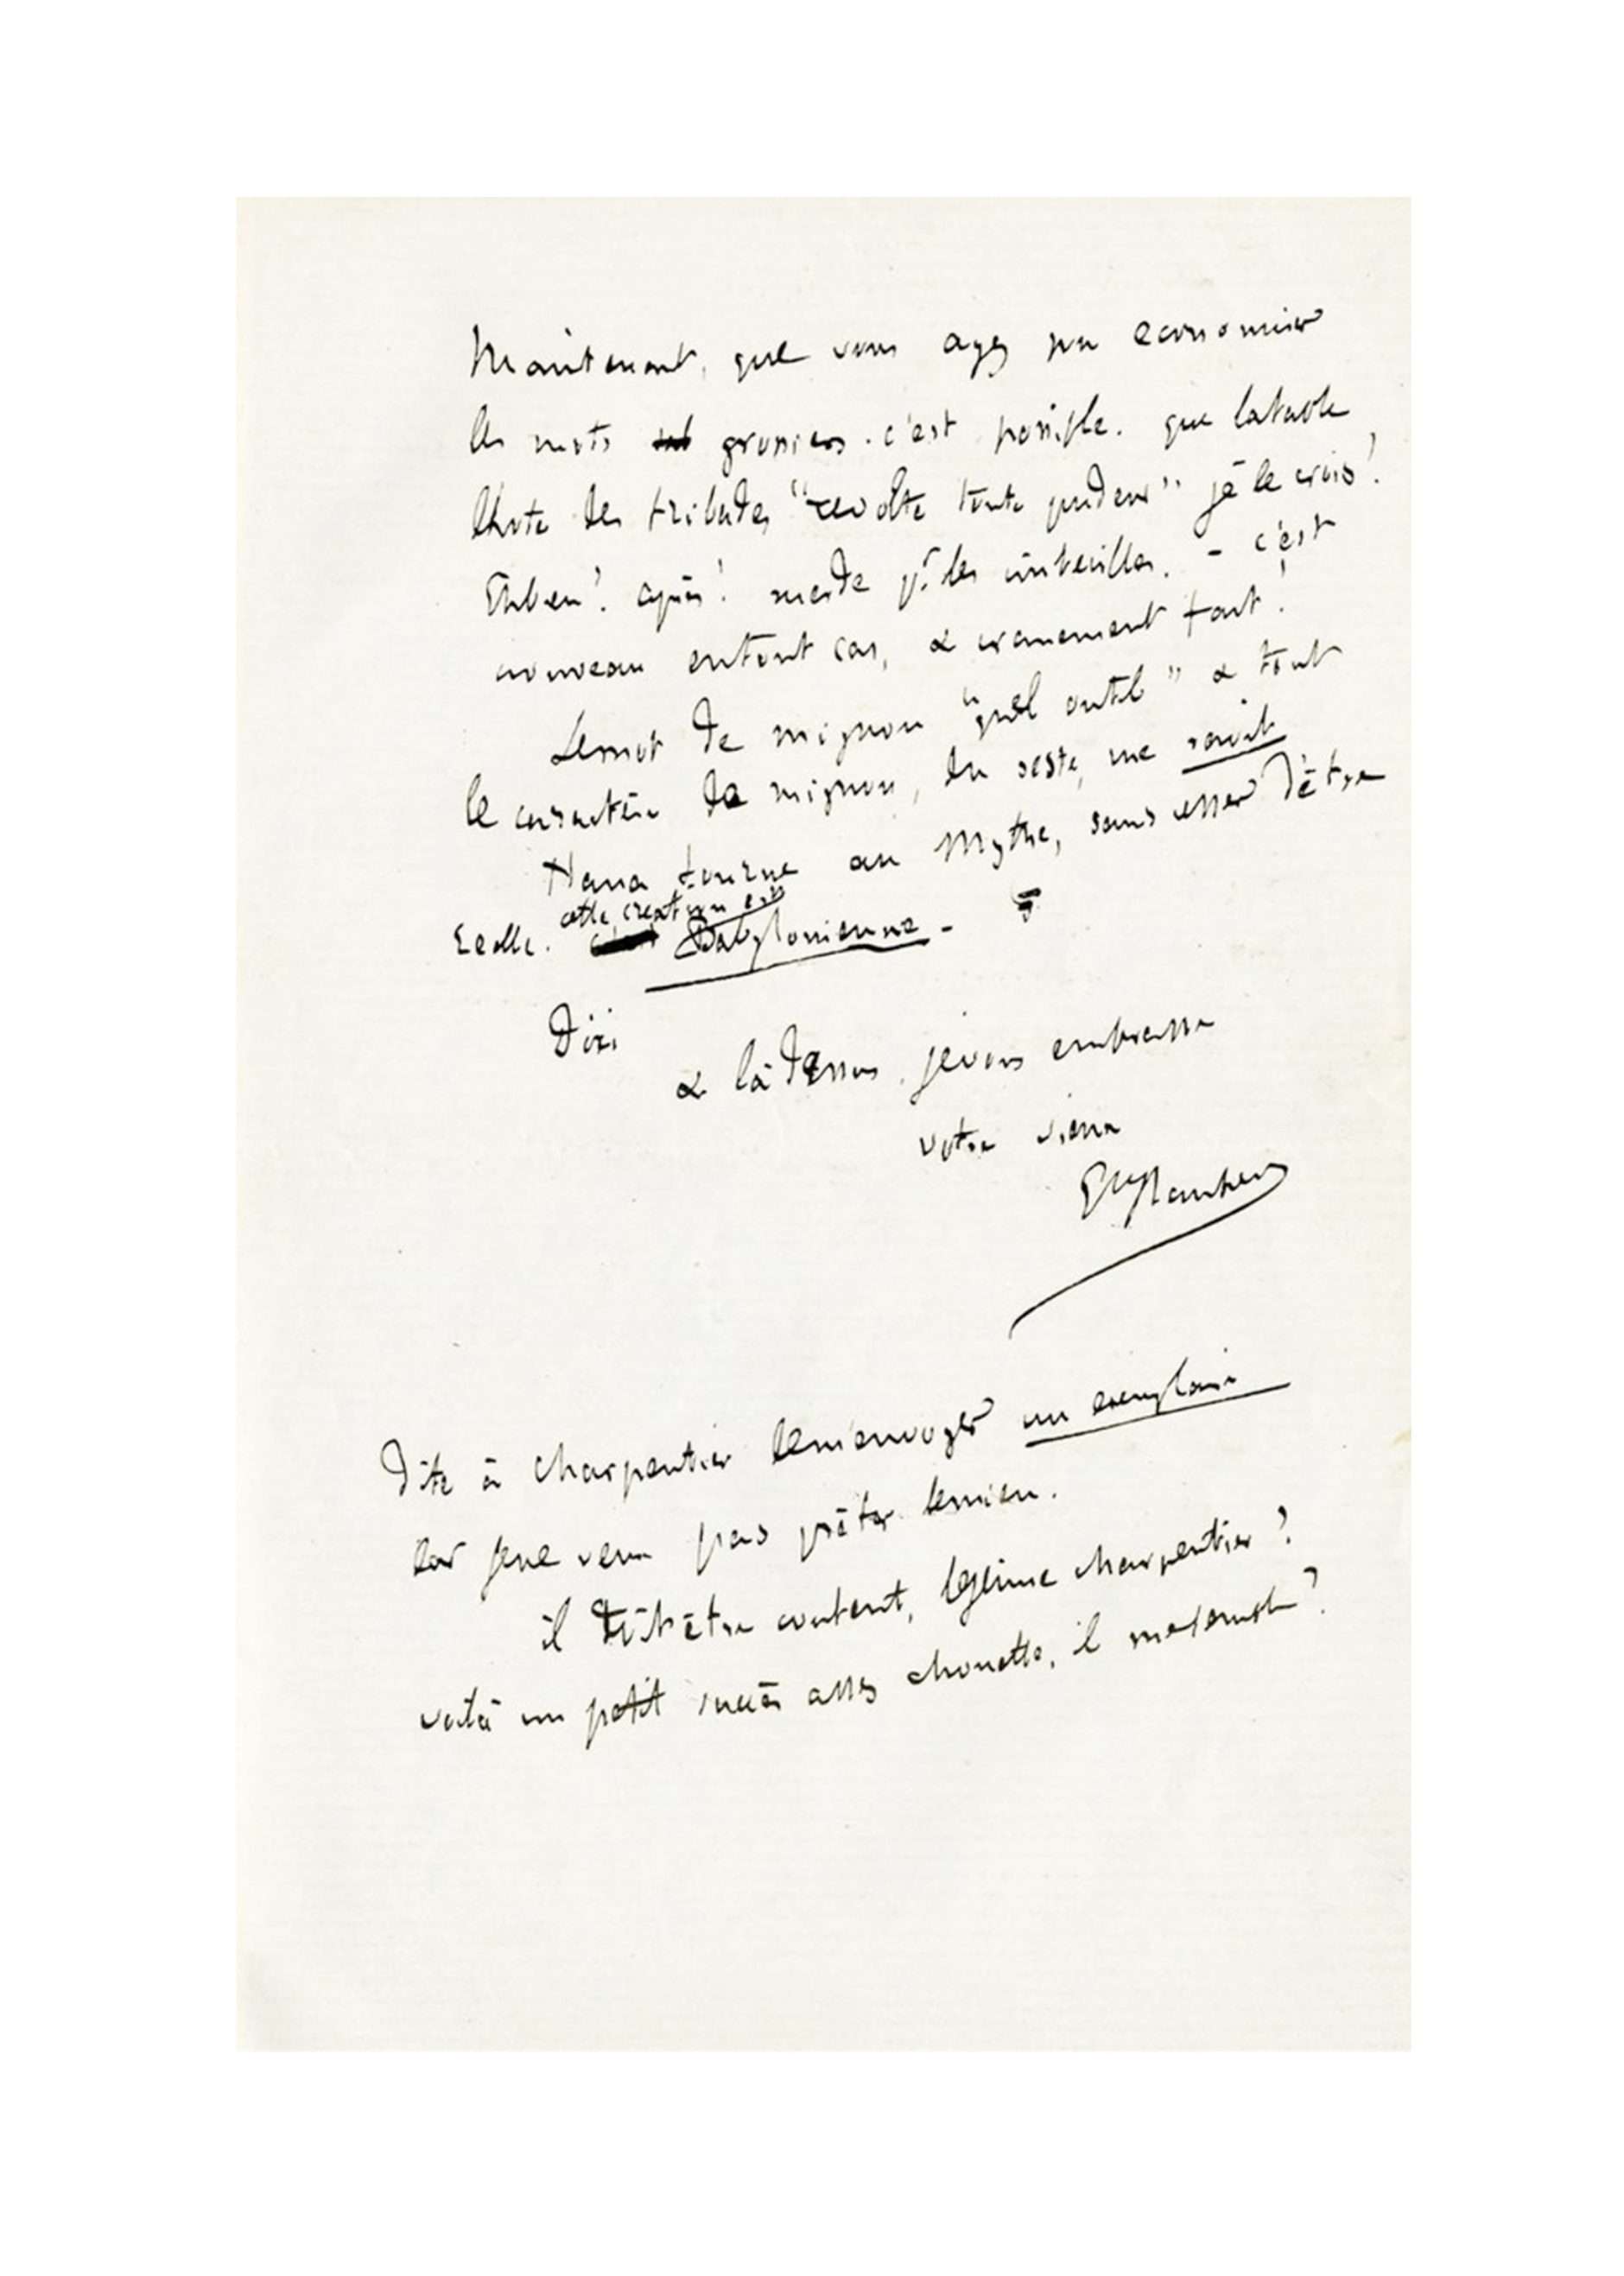 Maintenant, que vous ayez pu economiser
les mots grossiers. c'est possible. que la table
d'hote des tribades "revolte toute pudeur" je le crois!
Eh bien! après! merde pr les imbecilles. - c'est
nouveau en tout cas, & cranement fait!
Le mot de mignon "quel outil" & tout
le caractère de mignon, du reste, me ravit
Nana tourne au Mythe, sans cesser d'être
réelle. cette creation est Babylonienne -
Dixi
& là dessus, je vous embrasse
votre vieux
Gve Flaubert
Dite à Charpentier de m'envoyer un exemplaire
car je ne veux pas prêter le mien.
il doit être content, le jeune Charpentier?
voilà un petit succès assez chouette, il me semble?